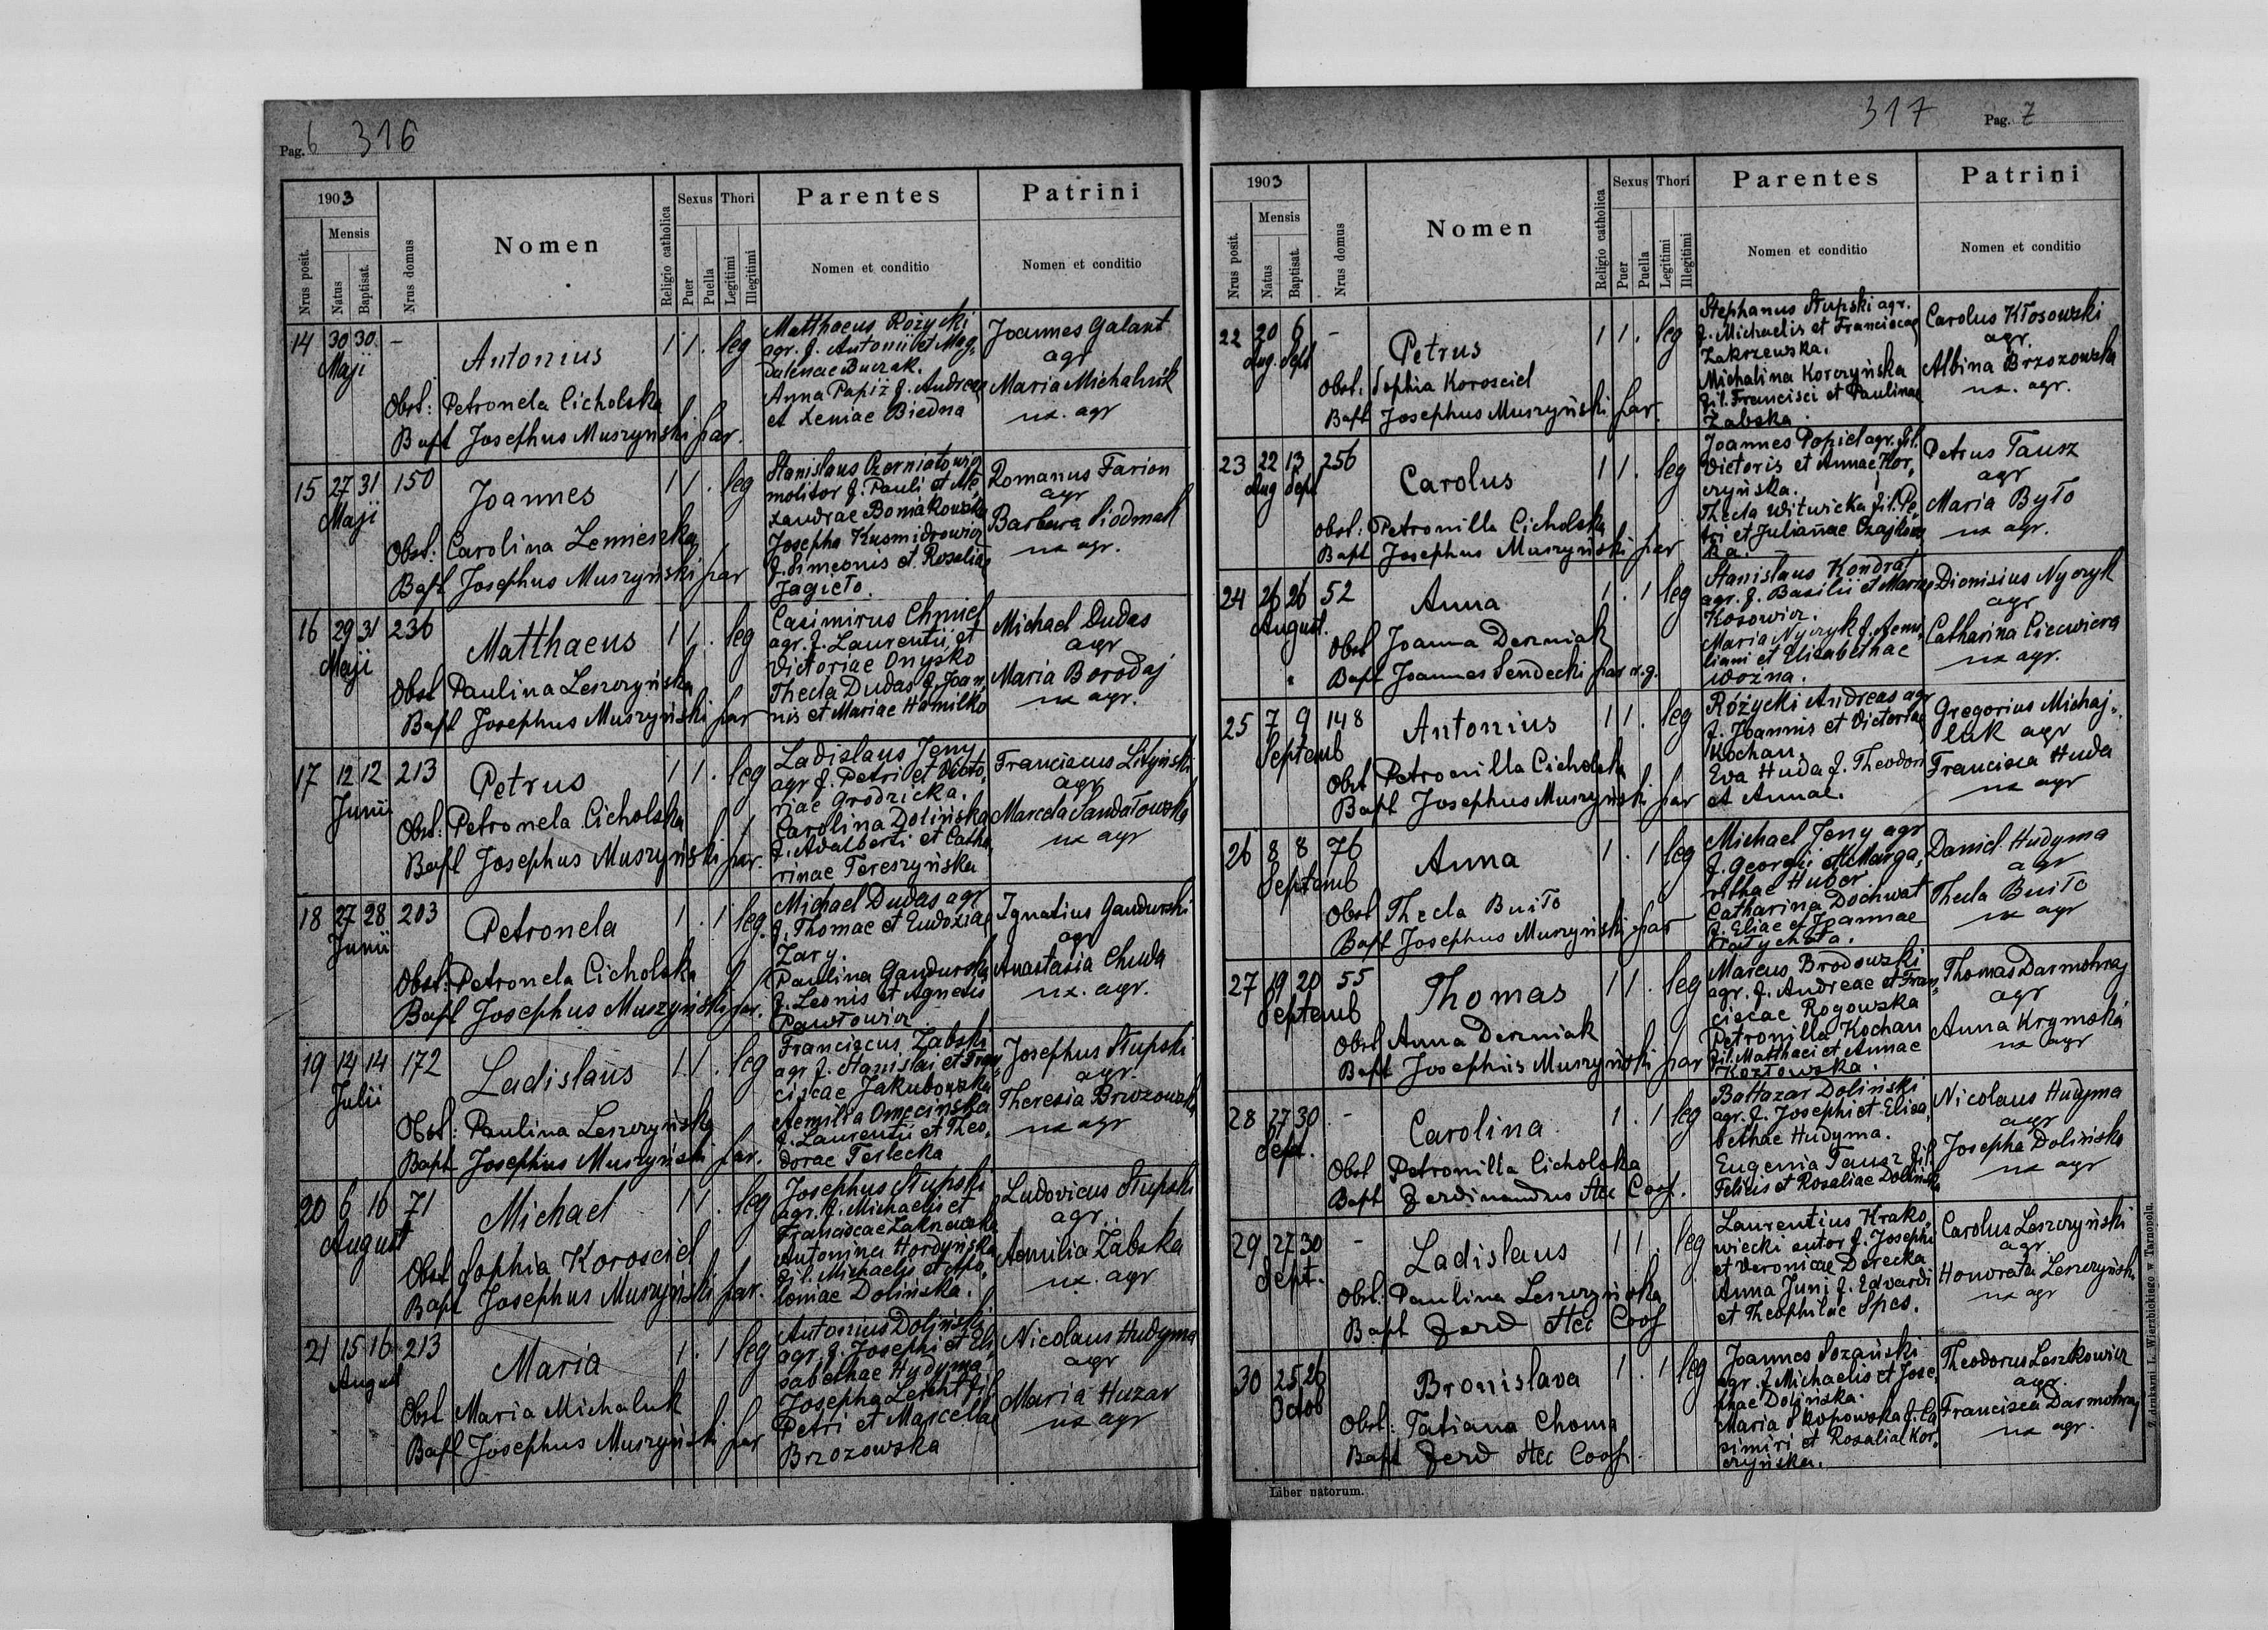 Pag. 6 316
1903
Nrus posit.
Mensis
Natus
Baptisat.
Nrus domus
Nomen
Religio catholica
Sexus
Puer
Puella
Thori
Legitimi
Illegitimi
Parentes
Nomen et conditio
Patrini
Nomen et conditio
14 30 30 Maji –
Antonius
1 1 . leg
Obst: Petronela Cicholska
Bapt Josephus Muszyński par.
Matthaeus Różycki
agr. f. Antonii et Mag„
dalenae Buczak.
Anna Papiż f. Andreae
et Xeniae Biedna
Joannes Galant
agr
Maria Michaluk
ux. agr
15 27 31 Maji 150
Joannes
1 1 . leg
Obst: Carolina Lemieszka
Bapt Josephus Muszyński par
Stanislaus Czerniatowicz
molitor f. Pauli et Ale„
xandrae Boniakowska
Josepha Kusmidrowicz
f. Simeonis et Rosaliae
Jagieło.
Romanus Farion
agr
Barbara Siodmak
ux agr.
16 29 31 Maji 236
Matthaeus
1 1 . leg
Obst Paulina Leszczyńska
Bapt Josephus Muszyński par
Casimirus Chmiel
agr. f. Laurentii et
Victoriae Onysko
Thecla Dudas f. Joan„
nis et Mariae Hamilko
Michael Dudas
agr
Maria Borodaj
ux agr.
17 12 12 Junii 213
Petrus
1 1 . leg
Obst: Petronela Cicholska
Bapt Josephus Muszyński par.
Ladislaus Jeny
agr f. Petri et Victo„
riae Grodzicka.
Carolina Dolińska
f. Adalberti et Catha„
rinae Tereszyńska
Franciscus Lityński
agr
Marcela Sandałowska
ux agr
18 27 28 Junii 203
Petronela
1 . 1 leg.
Obst: Petronela Cicholska
Bapt Josephus Muszyński par.
Michael Dudas agr
f. Thomae et Eudoxiae
Zary.
Paulina Gandurska
f. Leonis et Agnetis
Pawłowicz
Ignatius Gandurski
agr
Anastasia Chuda
ux. agr.
19 14 14 Julii 172
Ladislaus
1 1 . leg
Obst: Paulina Leszczyńska
Bapt Josephus Muszyński par.
Franciscus Żabski
agr f. Stanislai et Fran„
ciscae Jakubowska
Aemilia Omecińska
f. Laurentii et Theo„
dorae Terlecka
Josephus Słupski
agr.
Theresia Brzozowska
ux agr
20 6 16 August 71
Michael
1 1 . leg
Obst Sophia Korosciel
Bapt Josephus Muszyński par.
Josephus Słupski
agr. f. Michaelis et
Franciscae Zakrzewska
Antonina Hordyńska
fil. Michaelis et Apo„
loniae Dolińska.
Ludovicus Słupski
agr.
Aemilia Żabska
ux. agr
21 15 16 August 213
Maria
1 . 1 leg
Obst Maria Michaluk
Bapt Josephus Muszyński par
Antonius Doliński
agr. f. Josephi et Eli„
sabethae Hudyma
Josepha Leicht fil
Petri et Marcellae
Brzozowska
Nicolaus Hudyma
agr
Maria Huzar
ux agr
317 Pag. 7
1903
Nrus posit.
Mensis
Natus
Baptisat.
Nrus domus
Nomen
Religio catholica
Sexus
Puer
Puella
Thori
Legitimi
Illegitimi
Parentes
Nomen et conditio
Patrini
Nomen et conditio
22 20 6 Aug. Sept –
Petrus
1 1 . leg
Obst: Sophia Korosciel
Bapt Josephus Muszyński par.
Stephanus Słupski agr.
f. Michaelis et Franciscae
Zakrzewska.
Michalina Korczyńska
fil. Francisci et Paulinae
Żabska.
Carolus Kłosowski
agr.
Albina Brzozowska
ux. agr.
23 22 13 Aug Sept 256
Carolus
1 1 . leg
Obst: Petronilla Cicholska
Bapt Josephus Muszyński par
Joannes Popiel agr. fil.
Victoris et Annae Kor„
czyńska.
Thecla Witwicka fil. Pe„
tri et Julianae Czajkows
ka.
Petrus Tausz
agr
Maria Było
ux agr.
24 26 26 August. 52
Anna
1 . 1 leg
Obst Joanna Derniak
Bapt Joannes Sendecki par r.g.
Stanislaus Kondrat
agr. f. Basilii et Mariae
Kosowicz.
Maria Nyczyk f. Aemi„
liani et Elisabethae
Woźna.
Dionisius Nyczyk
agr
Catharina Ciecwierz
ux agr.
25 7 9 Septemb 148
Antonius
1 1 . leg
Obst Petronilla Cicholska
Bapt Josephus Muszyński par
Różycki Andreas agr
f. Joannis et Victoriae
Kochan.
Eva Huda f. Theodori
et Annae.
Gregorius Michaj„
luk agr
Francisca Huda
ux agr
26 8 8 Septemb 76
Anna
1 . 1 leg
Obst Thecla Buiło
Bapt Josephus Muszyński par
Michael Jeny agr
f. Georgii et Marga„
rithae Huber
Catharina Dochwat
f. Eliae et Joannae
Daniel Hudyma
agr
Thecla Buiło
ux agr
27 19 20 Septemb 55
Thomas
1 1 . leg
Obst Anna Derniak
Bapt Josephus Muszyński par
Marcus Brodowski
agr. f. Andreae et Fran„
ciscae Rogowska
Petronilla Kochan
fil. Matthaei et Annae
Kozłowska.
Thomas Darmohraj
agr
Anna Krymska
ux agr
28 27 30 Sept. –
Carolina
1 . 1 leg
Obst Petronilla Cicholska
Bapt Ferdinandus Coop.
Baltazar Doliński
agr. f. Josephi et Elisa„
bethae Hudyma.
Eugenia Tausz fil
Felicis et Rosaliae Dolińska
Nicolaus Hudyma
agr
Josepha Dolińska
ux agr
29 27 30 Sept. –
Ladislaus
1 1 . leg
Obst: Paulina Leszczyńska
Bapt Ferd Coop
Laurentius Krako„
wiecki sutor f. Josephi
et Veronicae Derecka
Anna Juni f. Edvardi
et Theophilae Spes.
Carolus Leszczyński
agr
Honorata Leszczyńska
ux agr
30 25 26 Octob
Bronislava
1 . 1 leg
Obst: Tatiana Choma
Bapt Ferd Coop.
Joannes Sozański
agr. f. Michaelis et Jose„
phae Dolińska.
Maria Skopowska f. Ca
simiri et Rosaliae Kor„
czyńska.
Theodorus Leszkowicz
agr.
Francisca Darmohraj
ux agr.
Liber natorum.
Z drukarni L. Wierzbickiego w Tarnopolu.